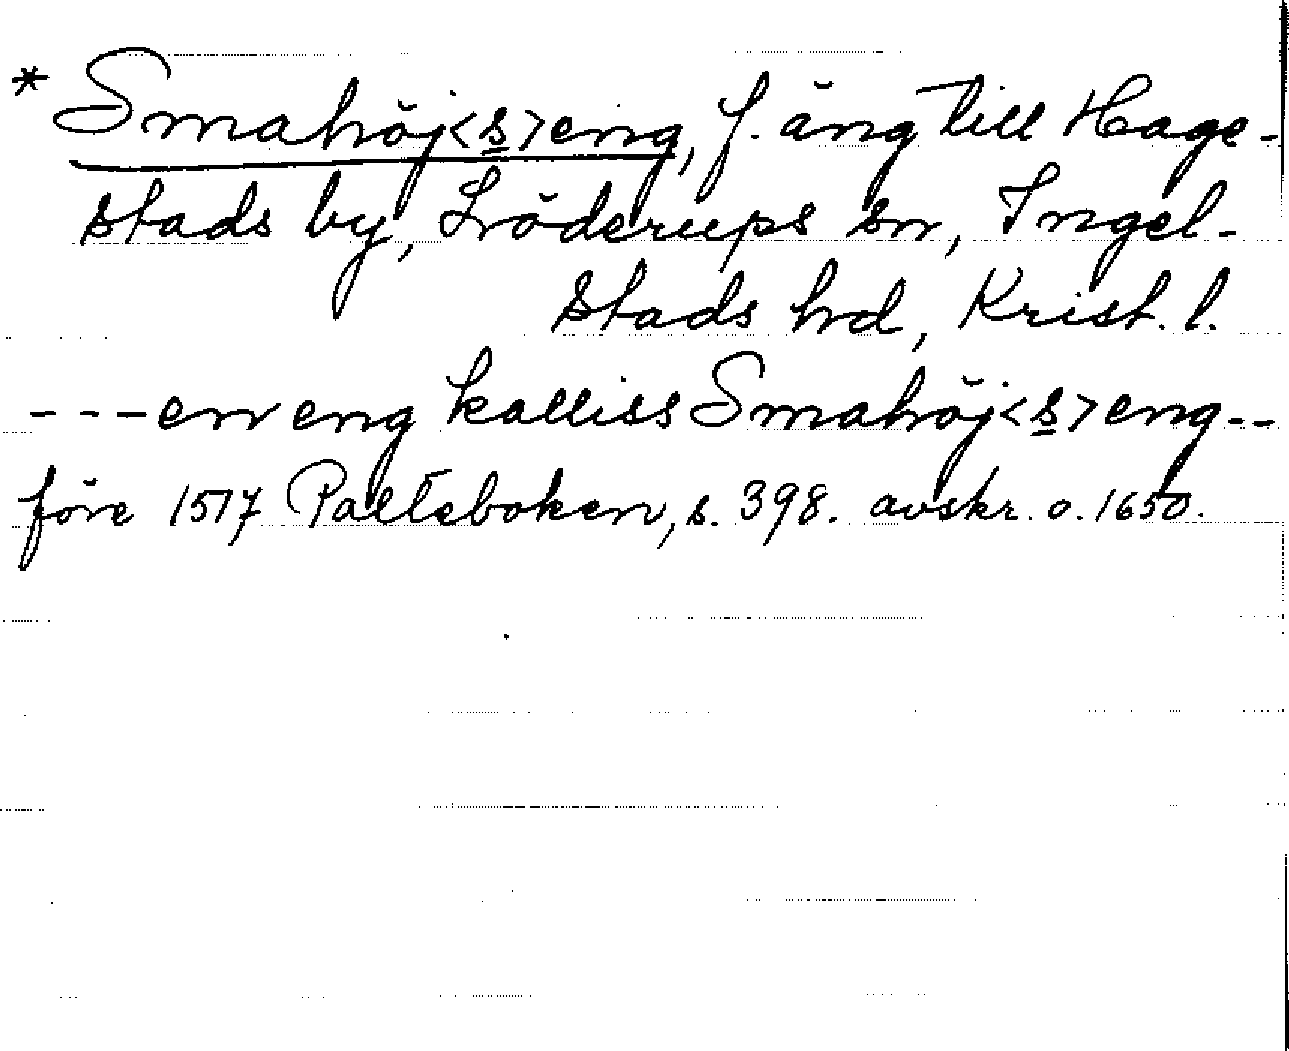 * Smahöj<s>eng, f. äng till Hage-
stads by, Löderups sn, Ingel-
stads hd, Krist. l.
---en eng kalliss Smahöj<s>eng--
före 1517 Palteboken, s. 398. avskr. o. 1650.